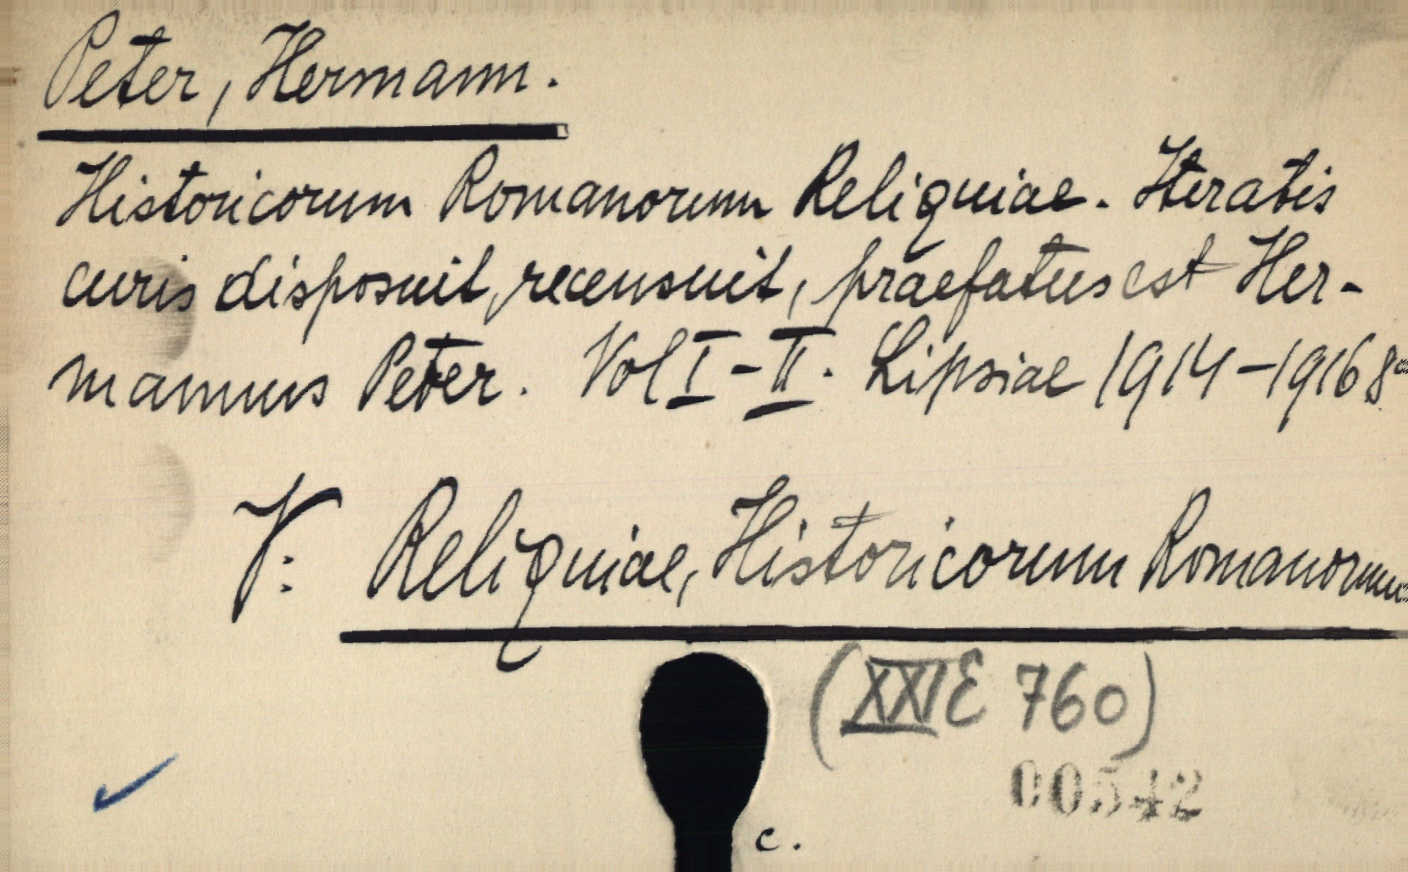 Peter, Hermann.
Historicorum Romanorum Reliquiae. Iteratis
curis disposuit, recensuit, praefatus est Her-
mannus Peter. Vol I-II. Lipsiae 1914-1916 8º
V: Reliquiae, Historicorum Romanorum
(XXI E 760)
00542
c.